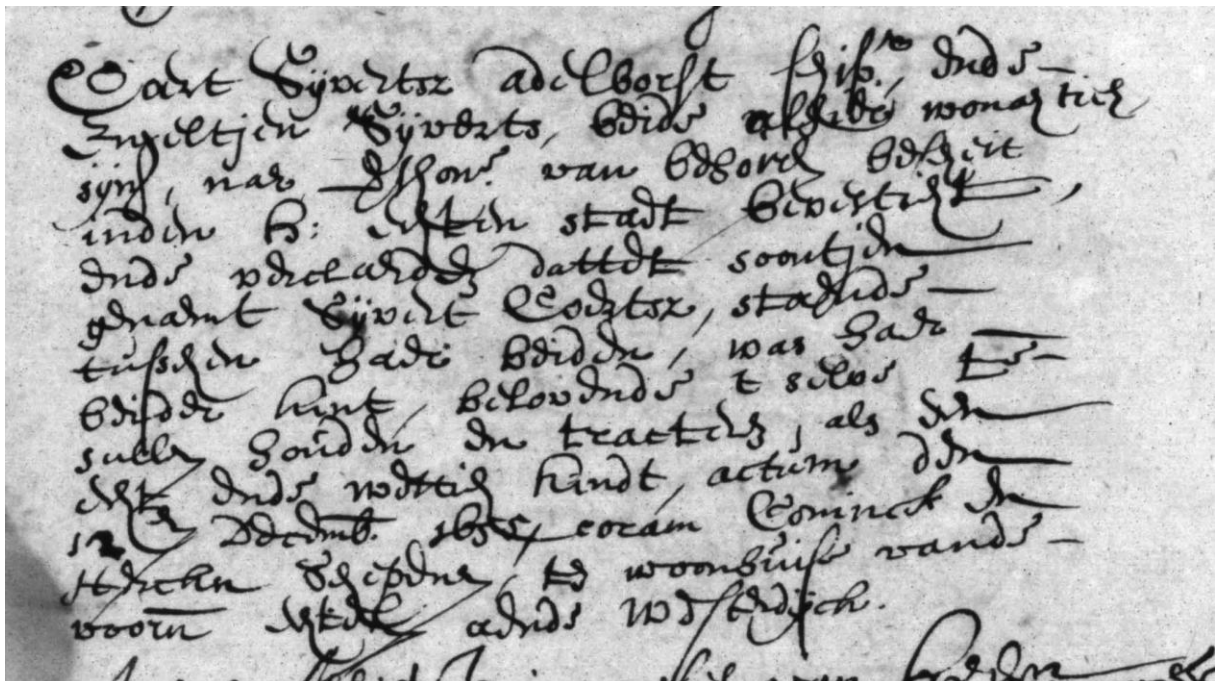 Coart Sijvertsz adelborst schip, ende
Engeltjen Sijverts, beide alhier wonachtich
sijn, nae van behoorl
inden h: Echten stadt bevesticht,
ende verclaerden dattet soontjen
genaemt Sijvert Coertsz, staende
tusschen haer beiden, was haer
beider kint, belovende t selve te
sullen houden en tracteren, als een
echt ende wettich kindt, actum den
12 Decemb. 1655, coram Coninck en
Schepenen, te woonhuise vande
voorn aende Westerdijck.